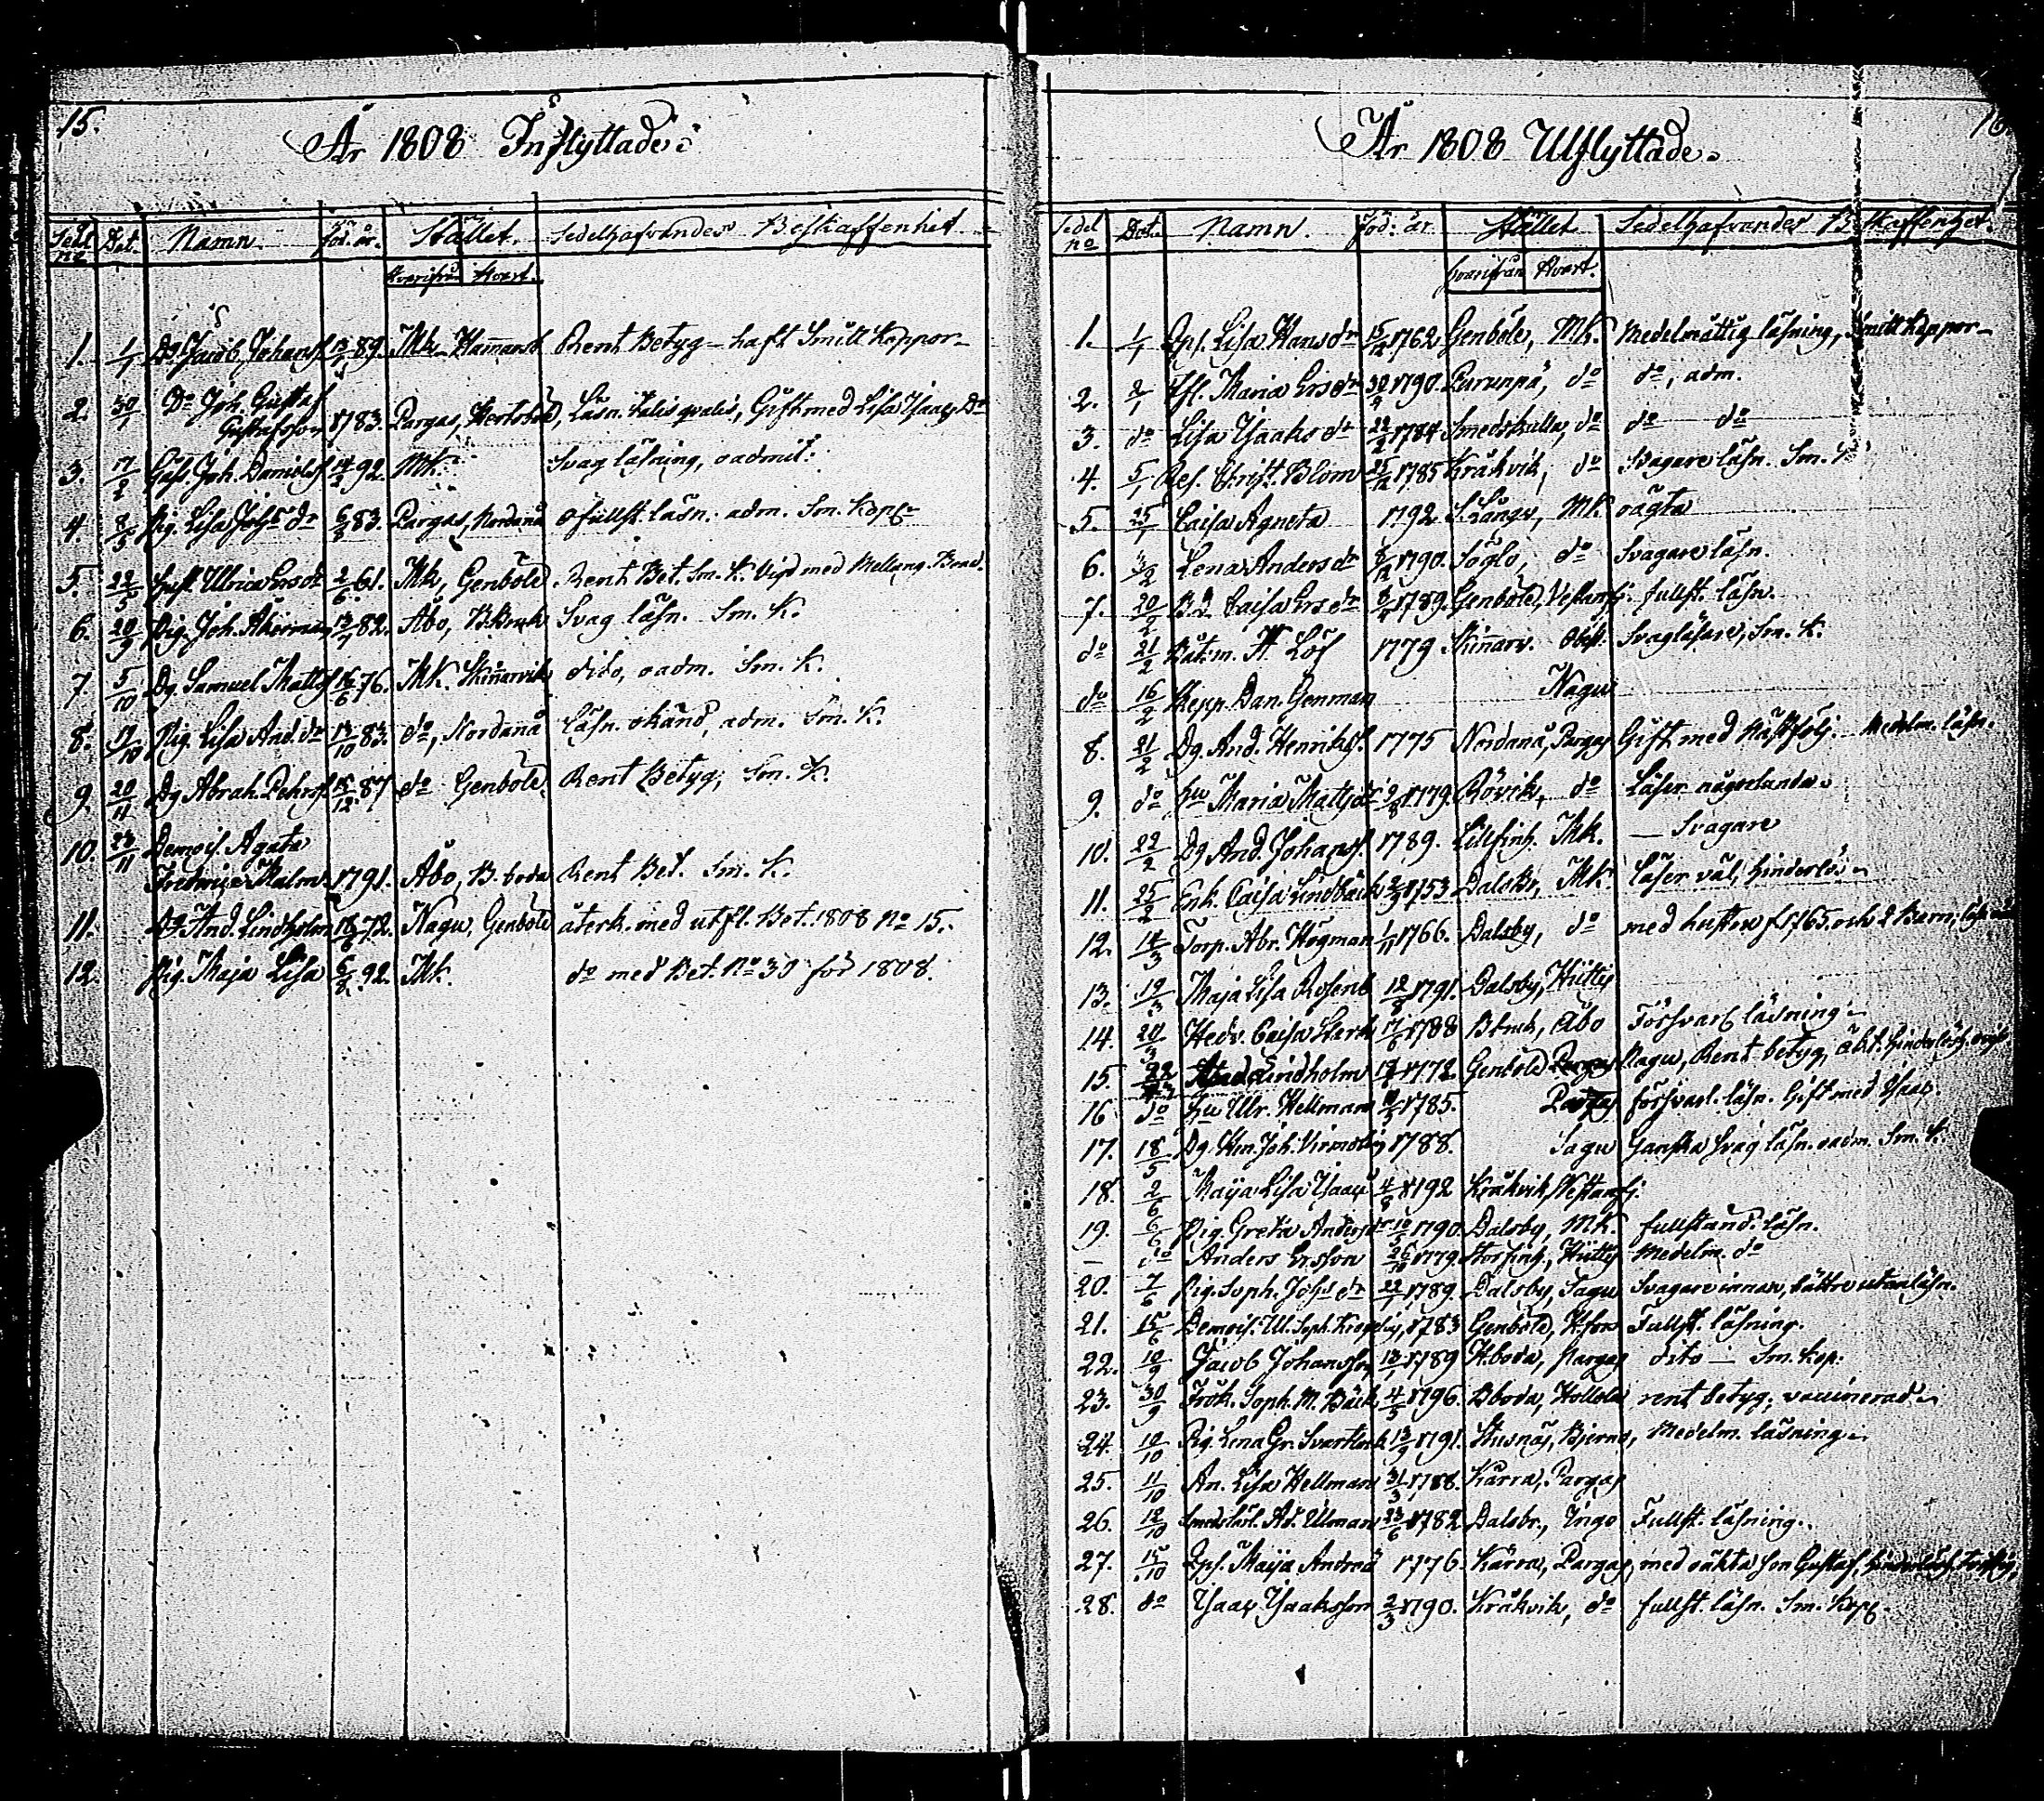 15.
År 1808 Inflyttade.
Sedl no Dat. Namn. föd. år. Stället. Sedelhafvandes Beskaffenhet.
Hvarifrån Hvart.
1. 1/1 Dg. Jacob Johanss 89. Mk Hammarsb Rent Betyg - haft Smitt Koppor-
2. 30/1 Do Joh. Gustaf
Gustafsson 1783. Pargas, Läsn. talis qualis, Gift med Lisa Isaacs Dr
3. 17/2 Joh. Daniels 14/2 92. Mk. Svag läsning, oadmit.
4. 8/5 Pig. Lisa Johs dr 6/8 83. Pargas, Nordanå ofullst. läsn. adm. Sm. Kopp
5. 22/5 Ulrica Ersdr 2/6 61. Mk, Genböle Rent Bet. Sm. K. Vigd med
6. 20/9 Pig. Joh. Åkerman 82. Åbo, B.Bruk Svag läsn. Sm. K.
7. 5/10 Dg. Samuel Matts 16/6 76. Mk. Skinnarvik dito, oadm. Sm. K.
8. 17/10 Pig. Lisa And. dr 13/10 83. do, Nordanå Läsn. okänd, adm. Sm. K.
9. 20/11 Dg Abrah. Pehrs 15/12 87 do Genböle Rent Betyg, Sm. K.
10. 23/11 Demois. Agata
Malm 1791. Åbo, B. boda Rent Bet. Sm. K.
11. Dg And. Lindholm 72. Nagu, Genböle återk. med utfl. Bet. 1808 No 15.
12. Pig. Maja Lisa 92. Mk. do med Bet. No 30 för 1808.
16
År 1808 Utflyttade.
Sedel no Dat. Namn. föd. år Stället. Sedelhafvandes Beskaffenhet.
hvarifrån Hvart.
1. 1/1 Lisa Hansdr 15/12 1762 Genböle, Mk. Medelmåttig läsning, Smitt Koppor-
2. 2/1 Maria Ersdr 1790. Purunpä, do do, adm.
3. do Lisa Isaaks dr 22/2 1784 Smedskulla, do do do
4. 5/1 Christ. Blom 25/12 1785 Kråkvik, do Svagare läsn. Sm. K
5. 25/1 Caisa Agneta 1792 Mk oägta
6. 3/2 Lena Anders dr 1790. Söglo, do Svagare läsn.
7. 20/2 Caisa Ersdr 1789. Genböle, Vestanfj. fullst. läsn.
do 21/2 Båtsm. Löf 1779 Skinnarv. Svagläsare, Sm. K.
do 16/2 Skepp. Dan. Genman Nagu
8. 21/2 Dg. And. Henrikss. 1775 Nordanå, Pargas Gift med näst följ. Medelm. läsn.
9. do hu Maria Matts dr 1779. Rövik, do Läser någorlunda.
10. 22/2 Dg And. Johanss. 1789. Lillfinh. Mk. - Svagare
11. 25/2 Enk. Caisa Lindbäck 1753 Dalsbr, Mk Läser väl, hinderlös
12. 14/3 Torp. Abr. Högman 1766. Dalsby, do med hustru f. 1765 och 2 Barn,
13. 19/3 Maja Lisa Rosenb 1791. Dalsby, Hittis
14. 20/3 Hedv. Caisa Stark 17/6 1788 Bbruk, Åbo Försvarl läsning
15. 22/3 And Lindholm 1772. Genböle Pargas Nagu, Rent betyg,
16 do hu Ulr. Hellman 1785. Pargas försvarl. läsn. Gift med Isaac.
17. 18/5 Dg. Joh. 1788. Sagu Ganska svag läsn. oadm. Sm. K.
18. 2/6 Maija Lisa Isaacs 1792 Kråkvik, Vestanfj.
19. 6/6 Pig. Greta Andersdr 1790. Dalsby, Mk fullständ. läsn.
- do Anders Ersson 1779. Storfinh., Hittis Medelm. do
20. 7/6 Pig. Soph. Johs dr 22/1 1789. Dalsby, Sagu Svagare innan, bättre utanläsn.
21. 15/6 Demois. Ul. Soph. 1783 Genböle, H.fors Fullst. läsning.
22. 10/9 Jacob Johansson 13/1 1789 H.boda, Pargas dito - Sm. kop.
23. 30/9 Frök. Soph. M. Bäck 4/5 1796. Bboda, Hollola rent betyg, vaccinerad.
24. 10/10 Pig. Lena Gr. 13/9 1791. Husnäs, Bjerno, Medelm. läsning
25. 11/10 An. Lisa Hellman 31/3 1788. Kärra, Pargas
26. 12/10 Ad. Ulman 23/6 1782. Dalsbr., Ingo Fullst. läsning.
27. 15/10 Maija Andreä 1776. Kärra, Pargas, med oäkta son Gustaf,
28. do Isaac Isaaksson 2/3 1790. Kråkvik, do fullst. läsn. Sm. Kopp.